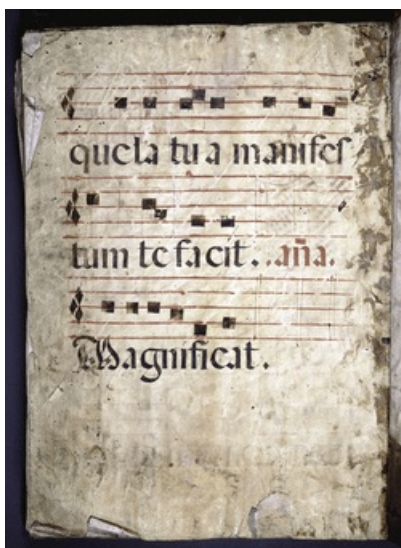 quela tu a manifes
tum te facit. .an̄a.
Magnificat.